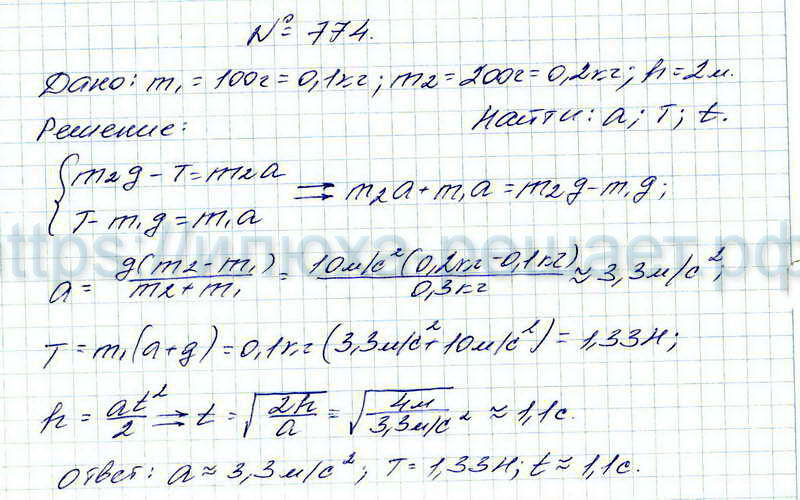 № 774.
Дано: m₁ = 100г = 0,1кг; m₂ = 200г = 0,2кг; h = 2м.
Найти: a; T; t.
Решение:
{ m₂g − T = m₂a
T − m₁g = m₁a ⇒ m₂a + m₁a = m₂g − m₁g;
https://илюха-решает.рф
a = g(m₂ − m₁) / m₂ + m₁ = 10м/с² (0,2кг − 0,1кг) / 0,3кг ≈ 3,3м/с²;
T = m₁(a + g) = 0,1кг (3,3м/с² + 10м/с²) = 1,33Н;
h = at²/2 ⇒ t = √(2h/a) = √(4м / 3,3м/с²) ≈ 1,1с.
Ответ: a ≈ 3,3м/с²; T = 1,33Н; t ≈ 1,1с.